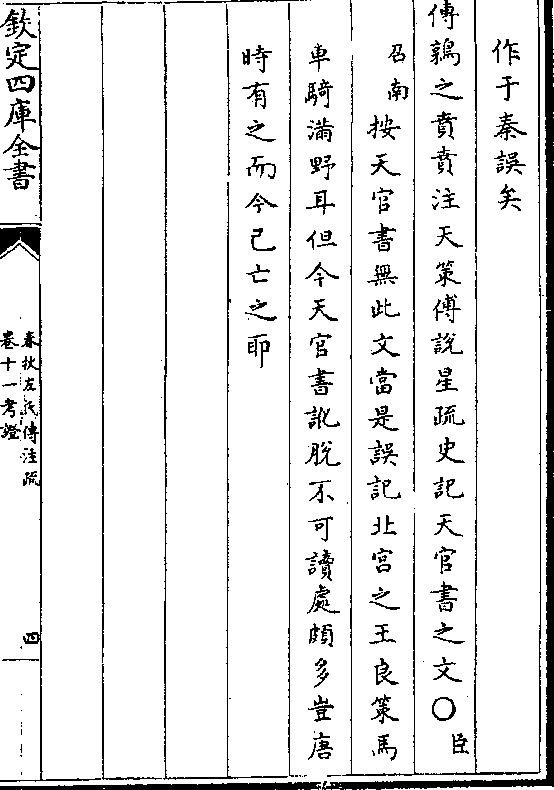 作于秦誤矣
傳鶉之賁賁注天策傅說星疏史記天官書之文〇臣
召南按天官書無此文當是誤記北宮之王良策馬
車騎滿野耳但今天官書訛脫不可讀處頗多豈唐
時有之而今已亡之耶
欽定四庫全書
春秋左氏傳注疏
卷十一考證
四